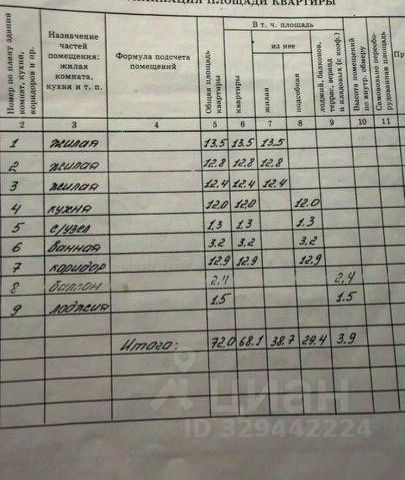 ПЛОЩАДИ КВАРТИРЫ
Номер по плану здания комнат, кухни, коридоров и пр.
Назначение частей помещения: жилая комната, кухня и т. п.
Формула подсчета помещений
В т. ч. площадь
из нее
Общая площадь квартиры
квартиры
жилая
подсобная
лоджий, балконов, террас, веранд и кладовых (с коэф.)
Высота помещений по внутр. обмеру
Самовольно переоборудованная площадь
Пр
2 3 4 5 6 7 8 9 10 11
1 жилая 13.5 13.5 13.5
2 жилая 12.8 12.8 12.8
3 жилая 12.4 12.4 12.4
4 кухня 12.0 12.0 12.0
5 с/узел 1.3 1.3 1.3
6 ванная 3.2 3.2 3.2
7 коридор 12.9 12.9 12.9
8 балкон 2,4 2,4
9 лоджия 1.5 1.5
Итого: 72.0 68.1 38.7 29.4 3,9
циан
ID 329442224